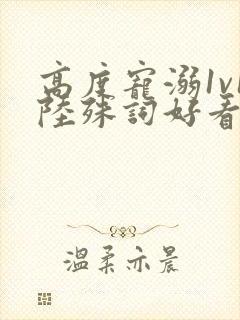 高度寵溺1v1
陸殊詞好看
溫柔亦晨